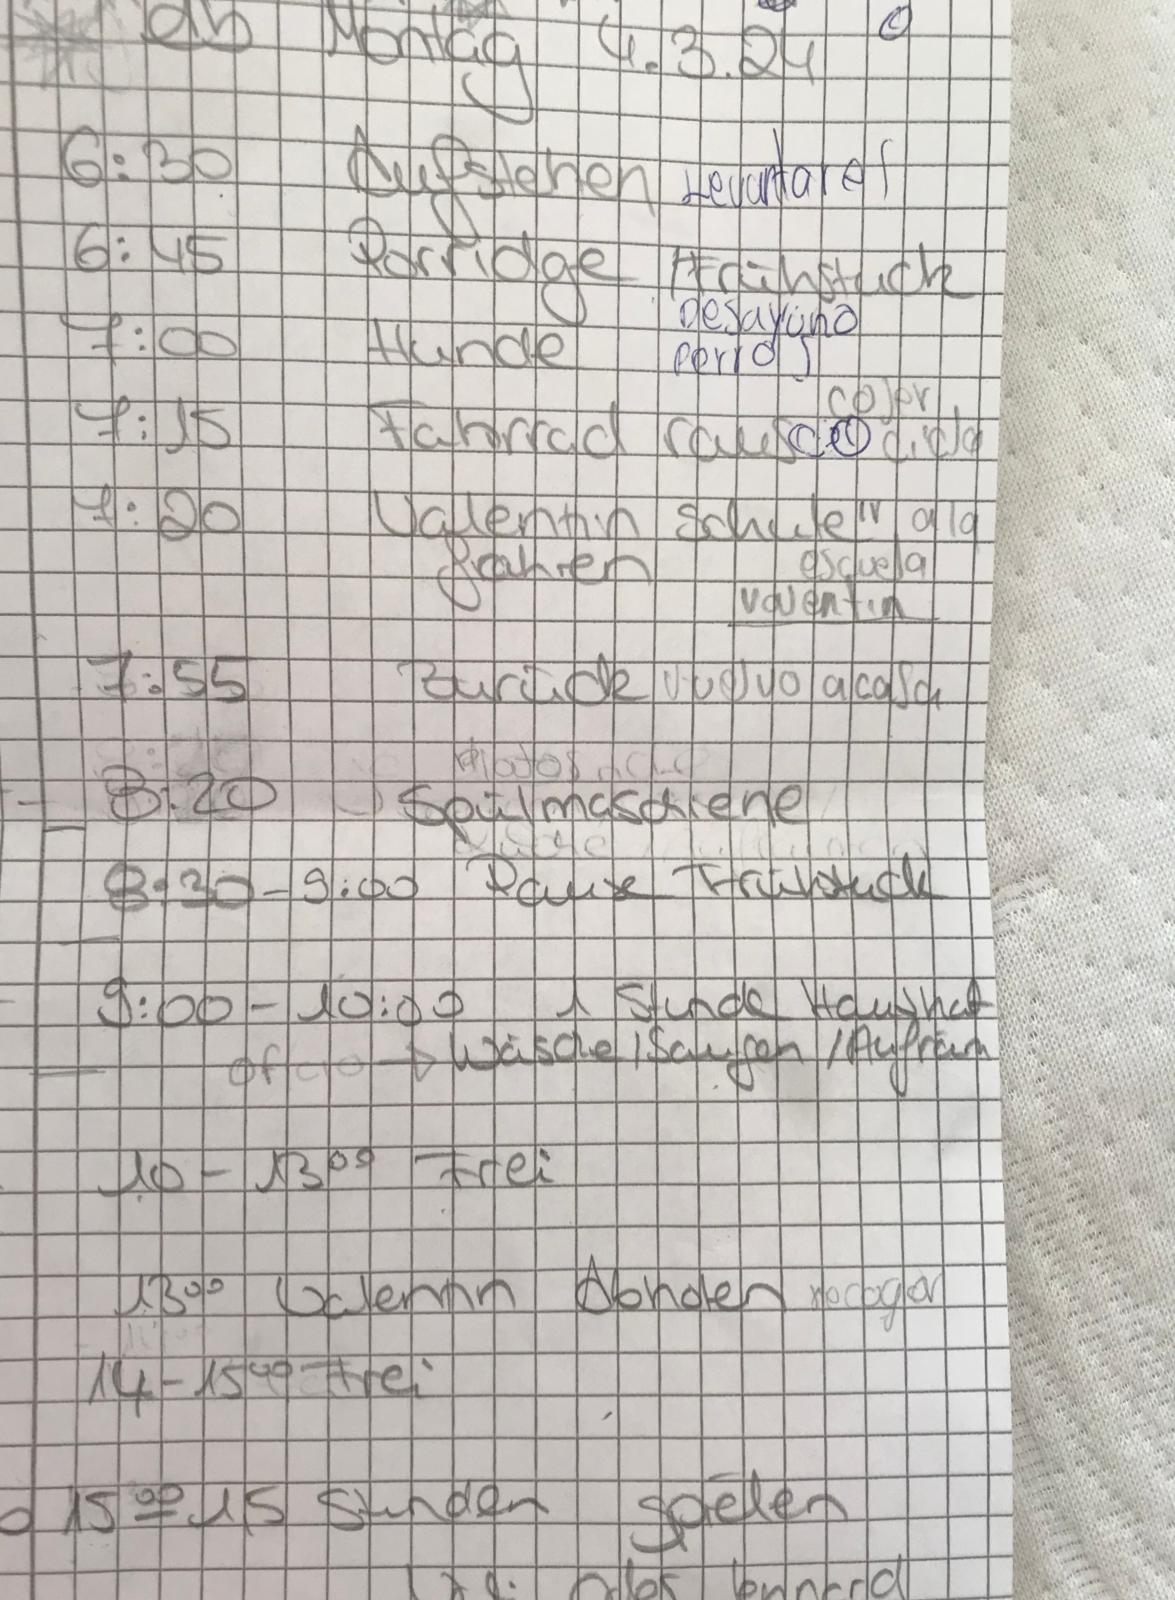 ab Montag 4.3.24
6:30 Aufstehen Levantares
6:45 Porridge Frühstück
desayuno
7:00 Hunde perros
cojer
7:15 Fahrrad raus
7:20 Valentin Schule ir a la
fahren esquela
valentin
7:55 Zurück vuelvo a casa
8:20 Spülmaschiene
8:30-9:00 Pause Frühstück
9:00-10:00 1 Stunde Haushat
→ Wäsche/Saugen/Aufräum
10-13⁰⁰ Frei
13⁰⁰ Valentin Abholen recoger
14-15⁰⁰ Frei
15⁰⁰ 1,5 Stunden spielen
oder